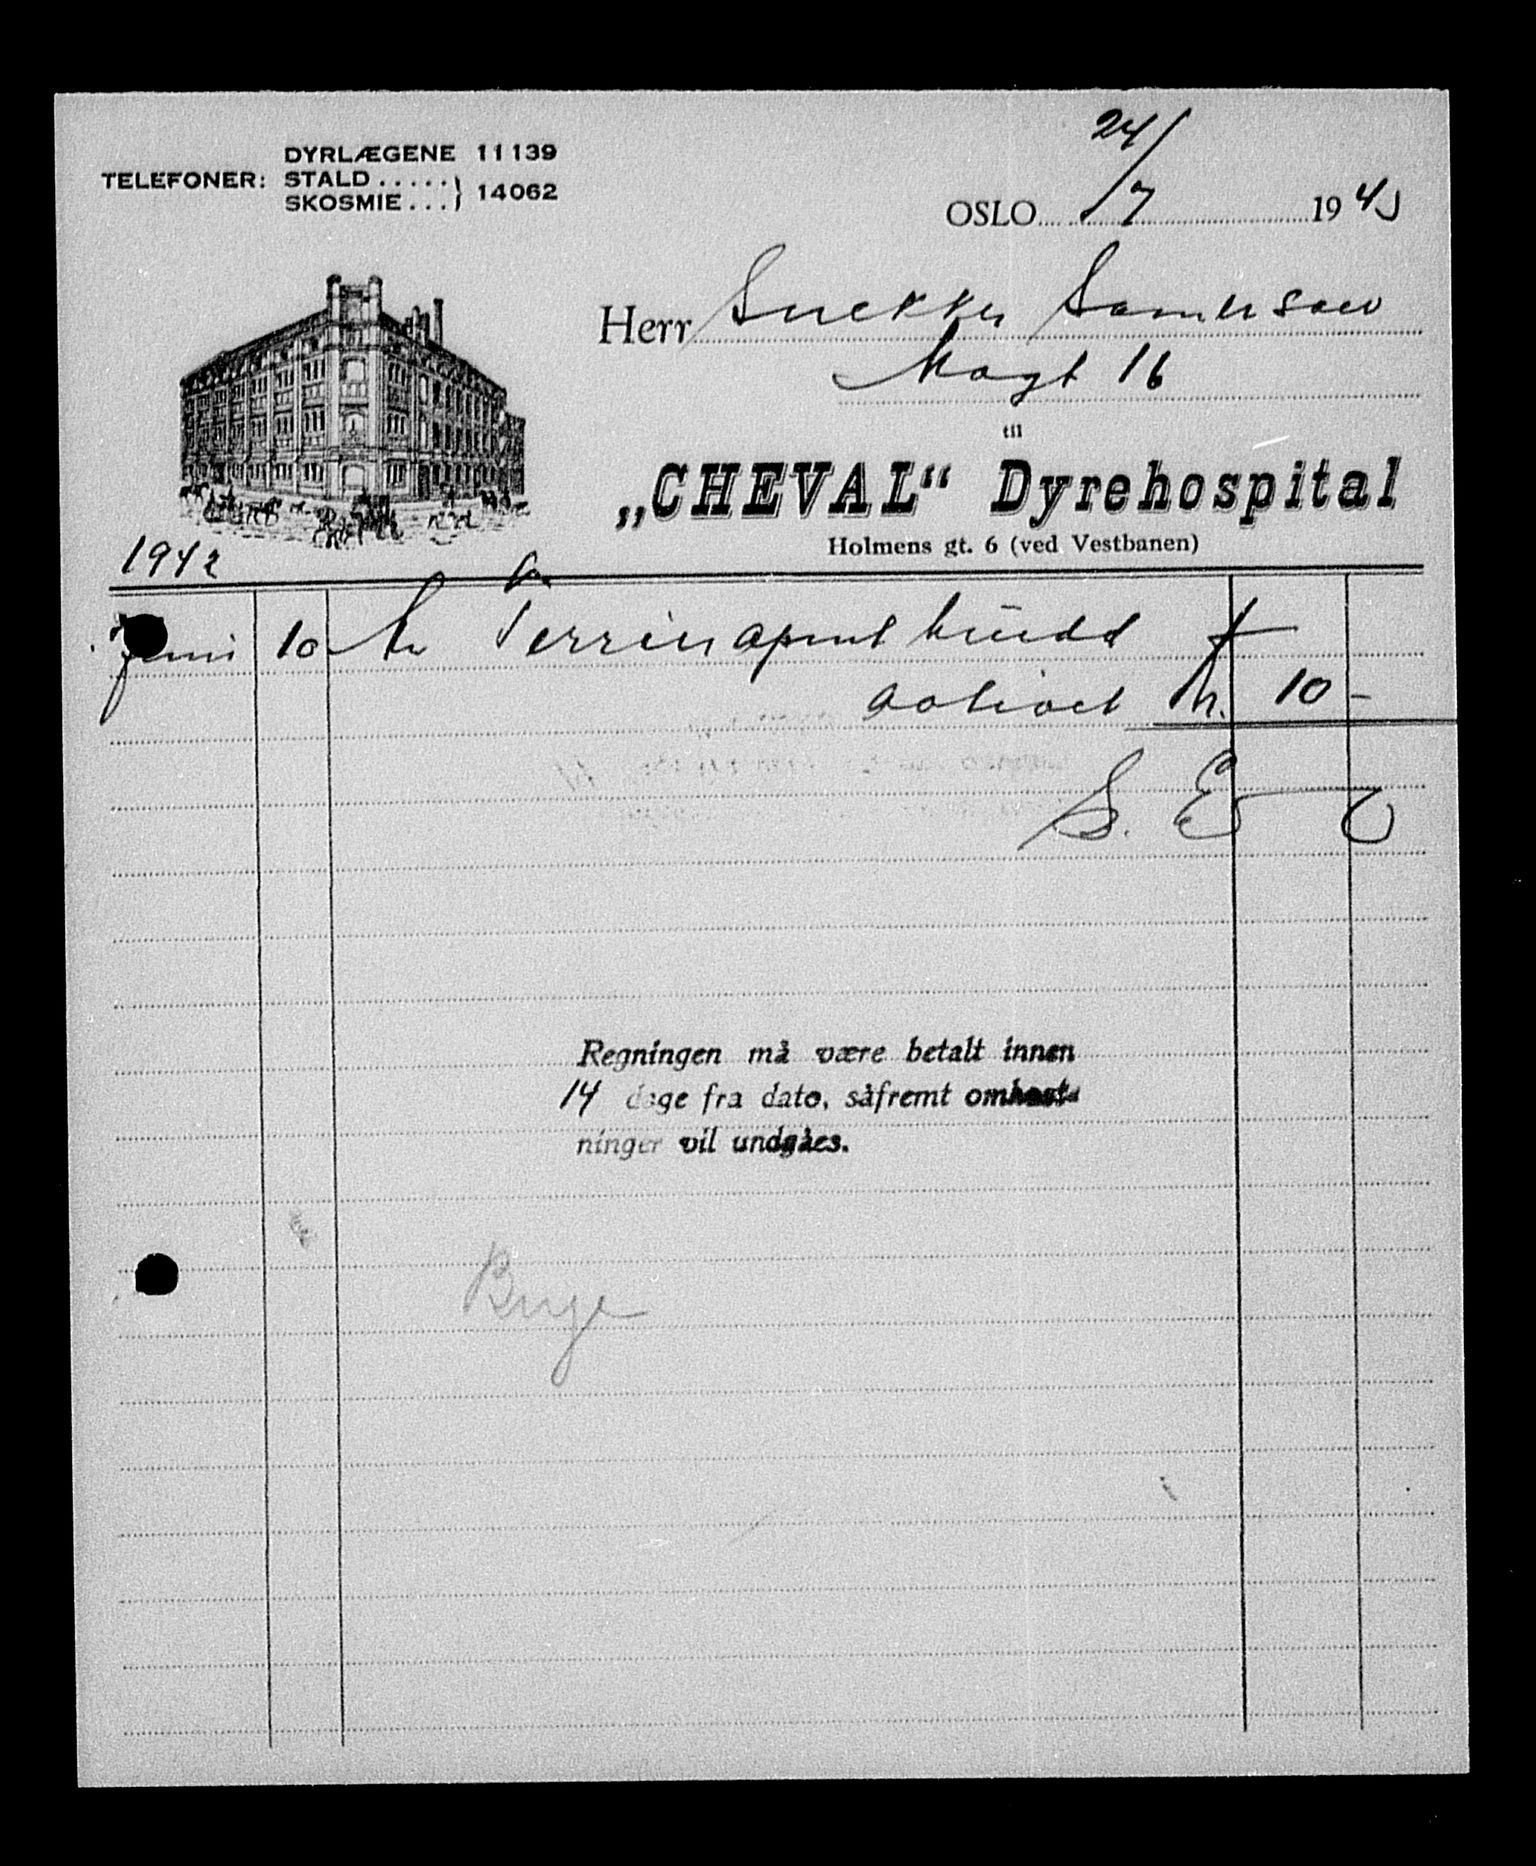 DYRLÆGENE 11139
TELEFONER: STALD ..... } 14062
SKOSMIE ... }
OSLO 24/7 1943
Herr Snekker
16
til
„CHEVAL“ Dyrehospital
Holmens gt. 6 (ved Vestbanen)
1942
Juni 10 hund
avlivet kr. 10 -
S. E
Regningen må være betalt innen
14 dage fra dato, såfremt omkost-
ninger vil undgåes.